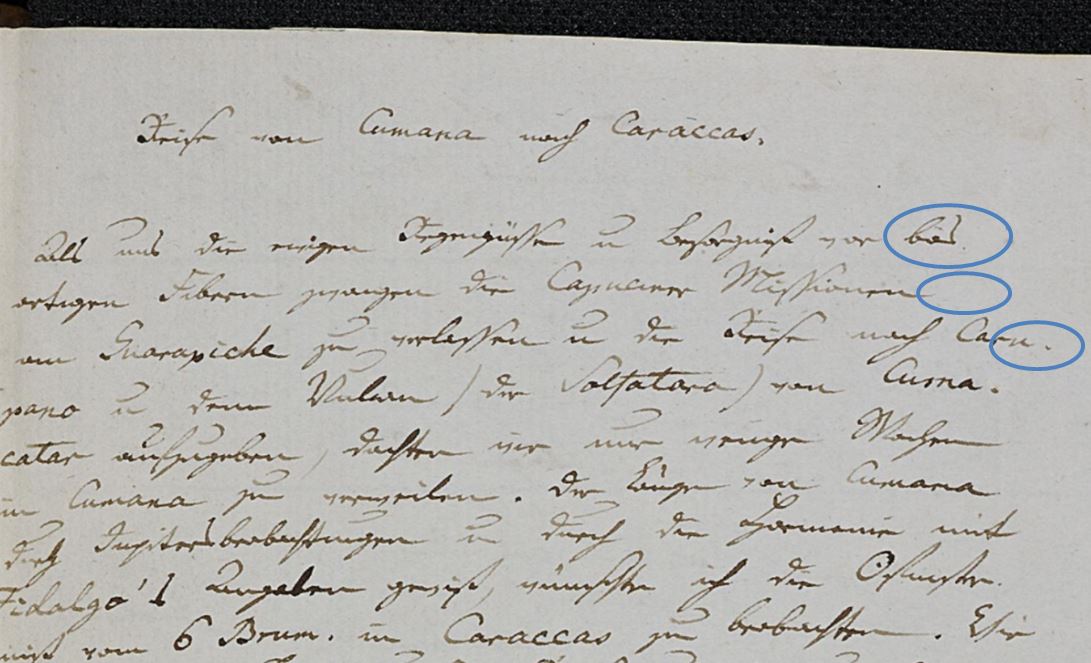 Reise von Cumana nach Caràccas.
Als uns die ewigen Regengüsse u Besorgniß vor bös.
artigen Fibern zwangen die Capuciner Missionen
am Guarapiche zu verlassen u die Reise nach Caru.
pano u dem Vulcan (der Solfatara) von Cuma.
catar aufzugeben, dachten wir nur wenige Wochen
in Cumana zu verweilen. Der Länge von Cumana
durch Jupitersbeobachtungen u durch die Harmonie mit
Fidalgo's Angaben gewiß, wünschte ich die Ofinster.
niß vom 6 Brum. in Caraccas zu beobachten. Wir